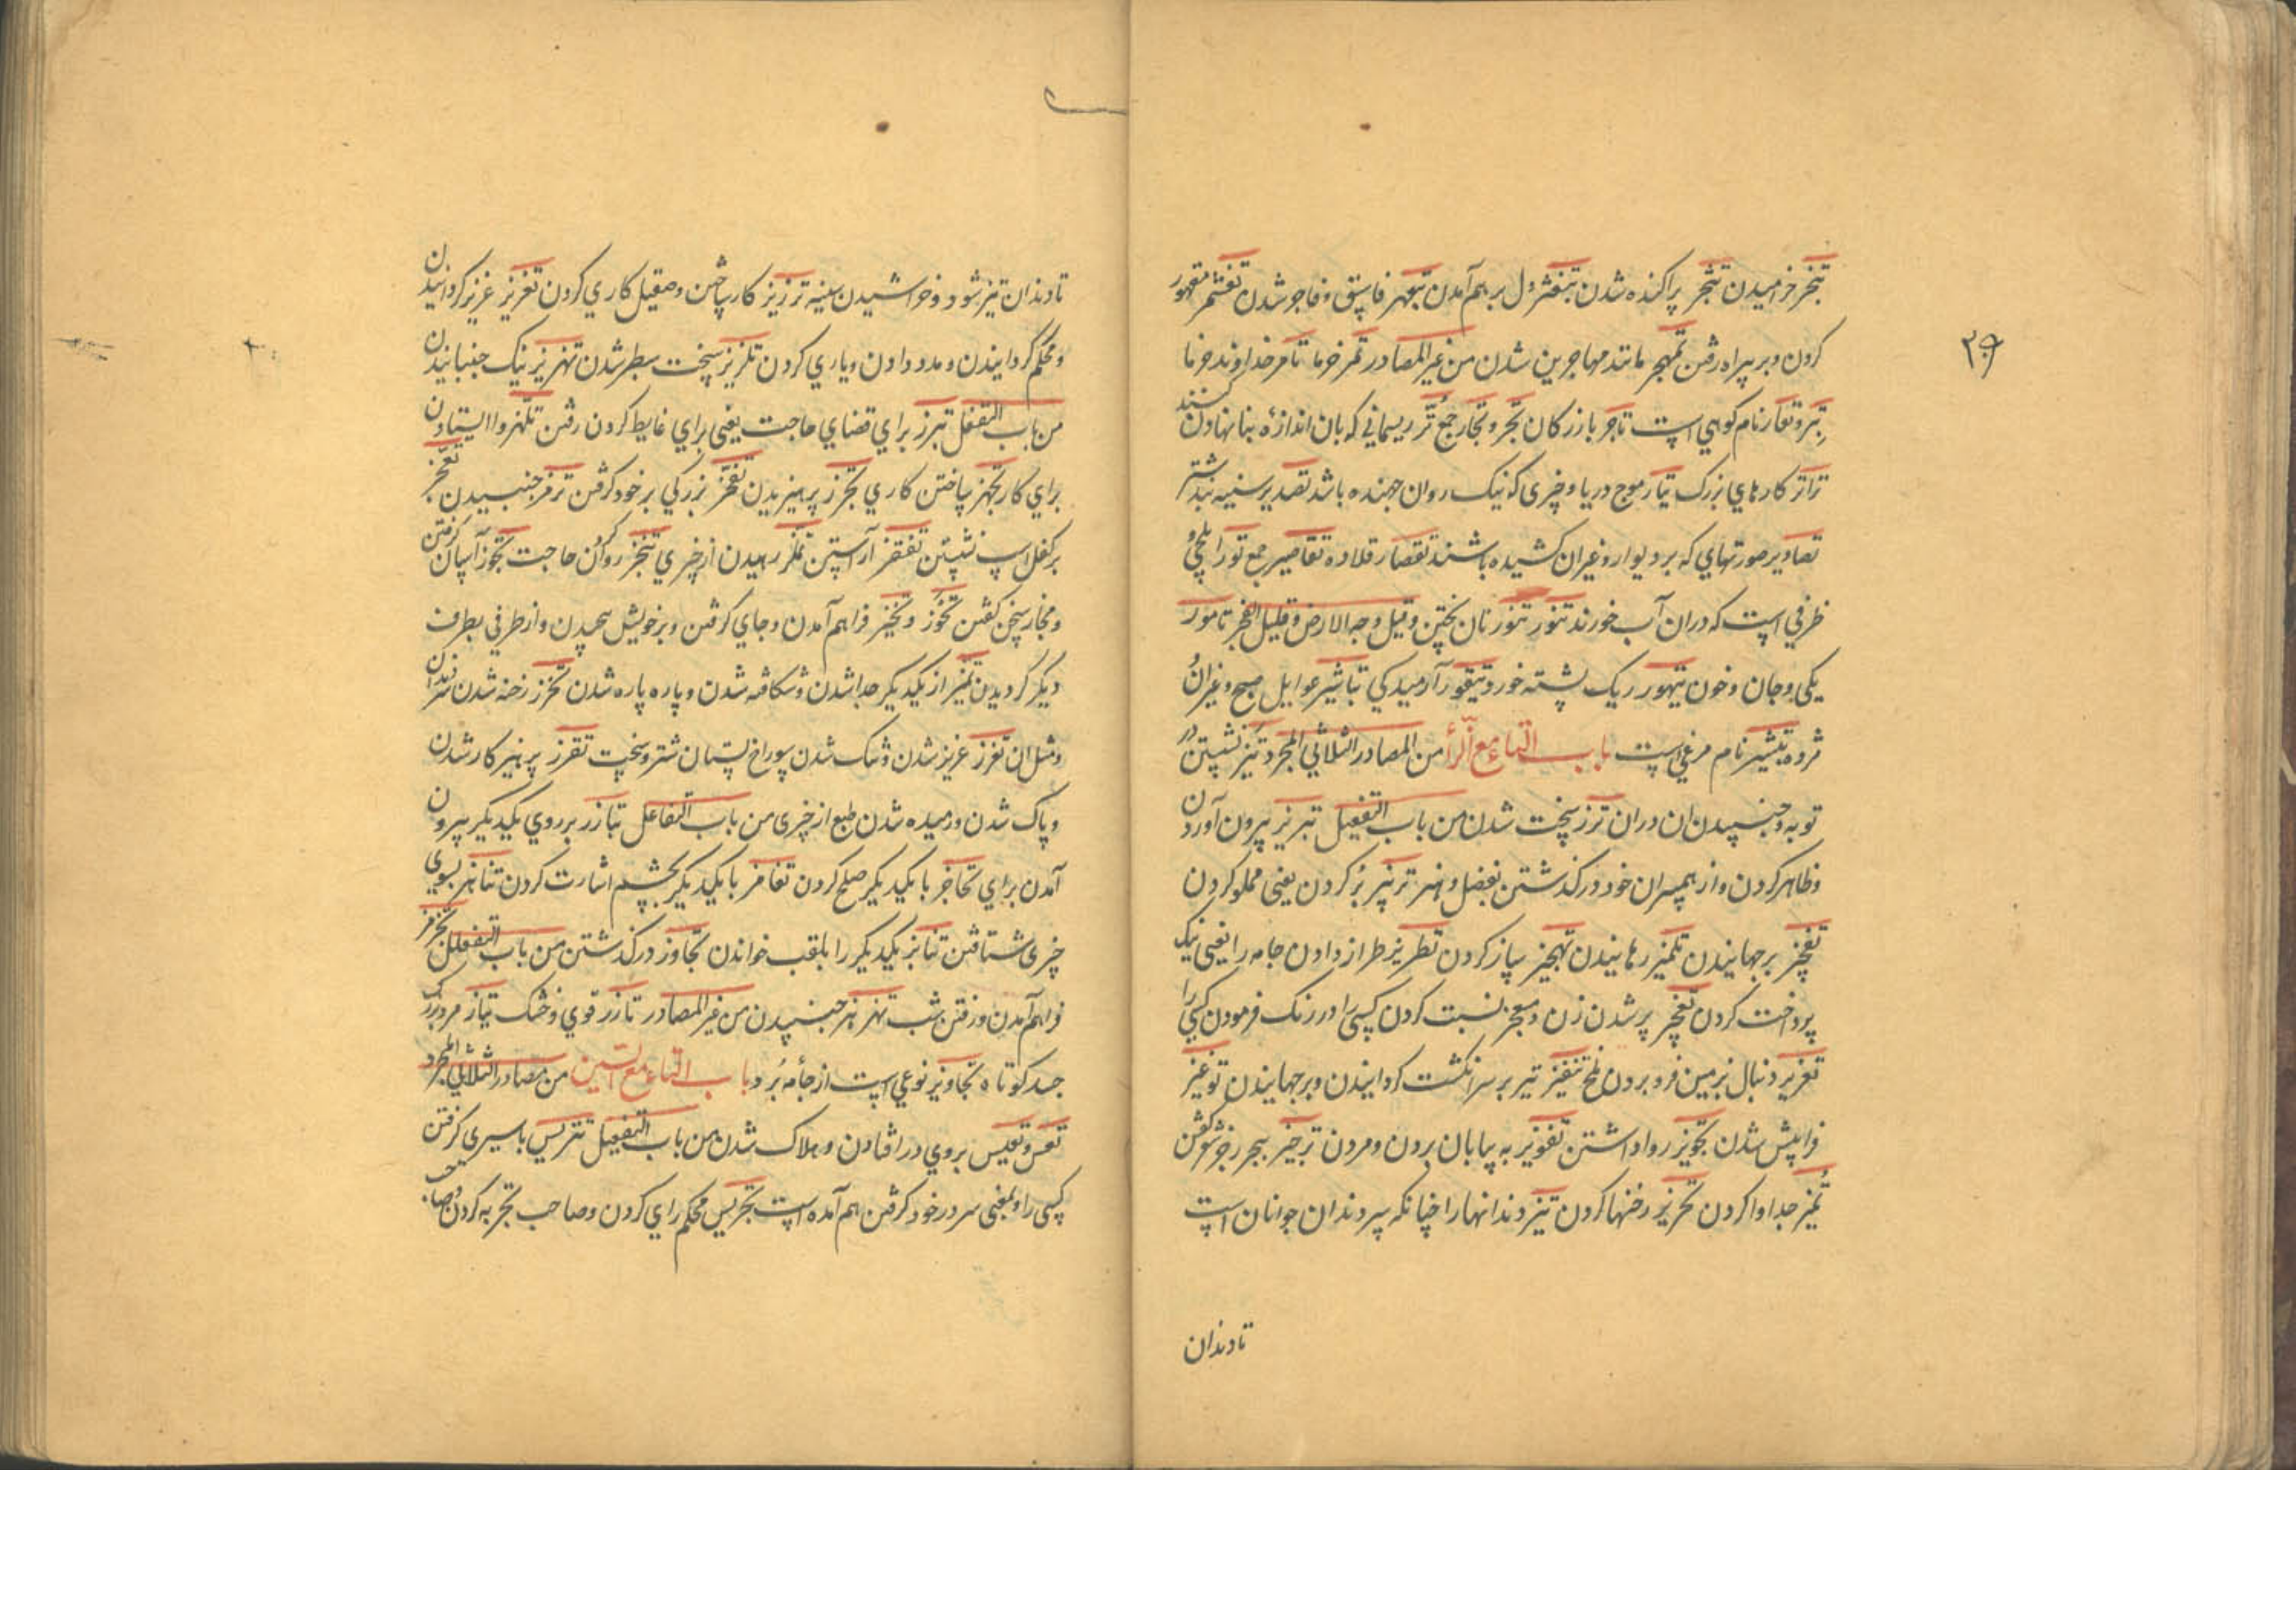 تبختر خرامیدن تبثجر پراکنده شدن تبغثر دل برهم آمدن تعهر فاسق و فاجر شدن تغشمر مقهور
کردن و بر بیراه رفتن تمهجر مانند مهاجرین شدن من غیر المصادر تمر خرما تامر خداوند خرما
تبر و تعار نام کوهی است تاجر بازرگان تجر و تجار جمع تر ریسمانی که بان اندازهٔ بنا نهادن کنند
تراتر کارهای بزرک تیار موج دریا و چیزی که نیک روان جهنده باشد تصدیر سینه بند شتر
تصاویر صورتهای که بر دیوار و غیران کشیده باشند تقصار قلاده تقاصیر جمع تور ایلچی و
ظرفی است که دران آب خورند تنور تنور نان پختن و قیل وجه الارض و قیل الفجر تامور
یکی و جان و خون تیهور ریک پشته خورد تیقور آرمیدکی تباشیر اوایل صبح و غیران
مژده تبشر نام مرغی است باب التاء مع الزأ من المصادر الثلاثی المجرد تیز نشستن در
توبه و جنبیدن ان دران ترز سخت شدن من باب التفعیل تبریز بیرون آوردن
و ظاهر کردن و از همسران خود در گذشتن بفضل و هنر ترنیز پر کردن یعنی مملو کردن
تقفیز برجهانیدن تلمیز رهانیدن تجهیز ساز کردن تطریز طراز دادن جامه را یعنی نیک
پرداخت کردن تعجیز پیر شدن زن و بعجز نسبت کردن کسی را و درنک فرمودن کسی را
تغریز دنبال بزمین فرو بردن ملخ تنفیز تیر بر سر انکشت کردانیدن و برجهانیدن توعیز
فرا پیش شدن تجویز روا داشتن تفویز به بیابان بردن و مردن ترجیز ببحر رجز شعر کفتن
تمیز جدا وا کردن تحزیز رخنها کردن تیز دندانها را چنانکه سر دندان جوانان است
تادندان
۳۰۹
تا دندان تیز شود و خراشیدن سینه ترزیز کار ساختن و صقیل کاری کردن تعزیز عزیز کردانیدن
و محکم کردانیدن و مدد دادن و یاری کردن تلزیز سخت سطبر شدن تهزیز نیک جنبانیدن
من باب التفعل تبرز برای قضای حاجت یعنی برای غایط کردن رفتن تلهز وا ایستادن
برای کار تجهز ساختن کاری تحرز پرهیزیدن تفخز بزرکی بر خود کرفتن ترمز جنبیدن تعجز
بر کفل اسپ نشستن تقفز آراستن تملز رهیدن از چیزی تنجز روا کردن حاجت تجوز آسان کرفتن
و مجاز سخن کفتن تحوز و تحیز فراهم آمدن و جای کرفتن و بر خویش پیچیدن و از طرفی بطرف
دیکر کردیدن تمیز از یکدیکر جدا شدن و شکافته شدن و پاره پاره شدن تحزز رخنه شدن سر دندان
و مثل ان تعزز عزیز شدن و تنک شدن سوراخ پستان شتر و سخت تقزز پرهیز کار شدن
و پاک شدن و رمیده شدن طبع از چیزی من باب التفاعل تبارز بر روی یکدیکر بیرون
آمدن برای تحاجز با یکدیکر صلح کردن تغامز با یکدیکر بچشم اشارت کردن تناهز بسوی
چیزی شتافتن تنابز یکدیکر را بلقب خواندن تجاوز در گذشتن من باب التفعلل تجرمز
فراهم آمدن و رفتن شب تهزهز جنبیدن من غیر المصادر تارز قوی و خشک تیاز مرد بزرک
جسد کوتاه تجاویز نوعی است از جامه برد باب التاء مع السین من مصادر الثلاثی المجرد
تعس و تعیس بروی در افتادن و هلاک شدن من باب التفعیل تتریس با سیری کرفتن
کسی را و بمعنی سر در خود کرفتن هم آمده است تجریس محکم رای کردن و صاحب تجربه کردن و صاحب